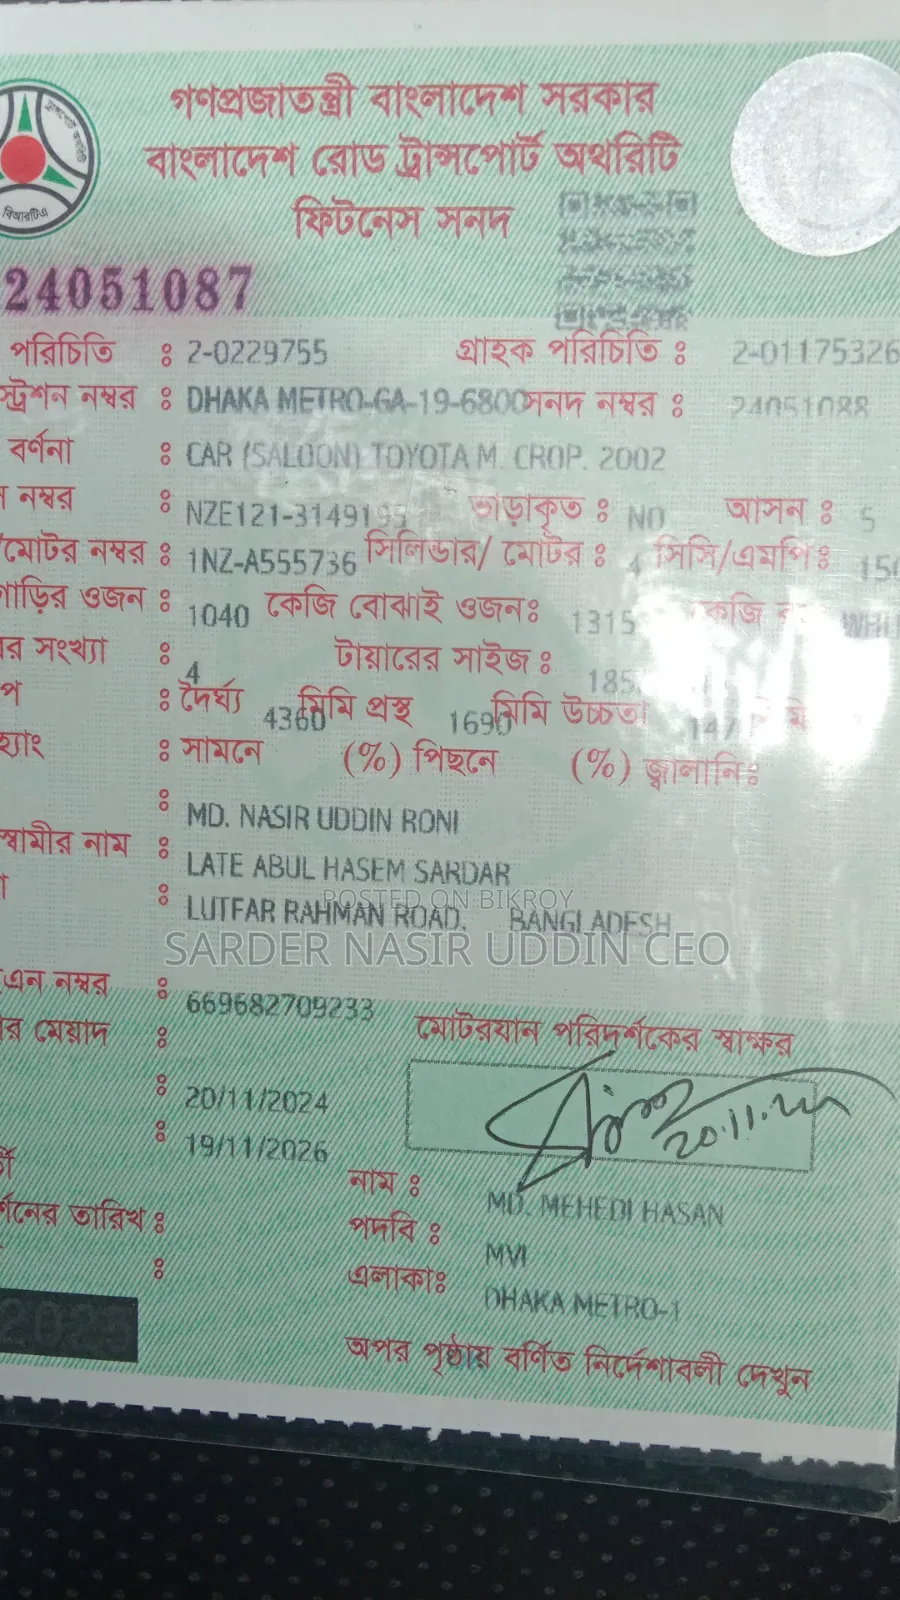 গণপ্রজাতন্ত্রী বাংলাদেশ সরকার
বাংলাদেশ রোড ট্রান্সপোর্ট অথরিটি
ফিটনেস সনদ
বিআরটিএ
24051087
পরিচিতি : 2-0229755 গ্রাহক পরিচিতি : 2-01175326
স্ট্রেশন নম্বর : DHAKA METRO-GA-19-6800 সনদ নম্বর : 24051088
বর্ণনা : CAR (SALOON) TOYOTA M. CROP. 2002
নম্বর : NZE121-3149195 ভাড়াকৃত : NO আসন : 5
মোটর নম্বর : 1NZ-A555736 সিলিন্ডার/ মোটর : 4 সিসি/এমপি: 150
গাড়ির ওজন : 1040 কেজি বোঝাই ওজন: 1315 কেজি
র সংখ্যা : 4 টায়ারের সাইজ : 185
প : দৈর্ঘ্য 4360 মিমি প্রস্থ 1690 মিমি উচ্চতা 147
হ্যাং : সামনে (%) পিছনে (%) জ্বালানি:
: MD. NASIR UDDIN RONI
স্বামীর নাম : LATE ABUL HASEM SARDAR
: LUTFAR RAHMAN ROAD, BANGLADESH
POSTED ON BIKROY
SARDER NASIR UDDIN CEO
এন নম্বর : 669682709233
র মেয়াদ :
মোটরযান পরিদর্শকের স্বাক্ষর
: 20/11/2024
20.11.24
: 19/11/2026
নাম : MD. MEHEDI HASAN
র্শনের তারিখ :
পদবি : MVI
এলাকা: DHAKA METRO-1
অপর পৃষ্ঠায় বর্ণিত নির্দেশাবলী দেখুন